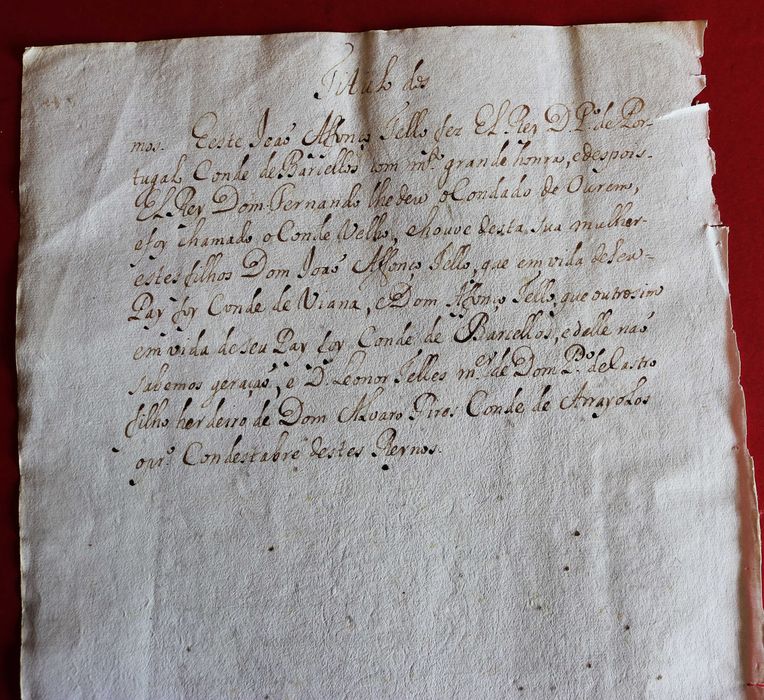 Titulo dos
mos. Eeste Joaõ Affonço Tello fez El Rey D. P.º de Por-
tugal Conde de Barcellos com m.ta grande honra, e despois-
El Rey Dom Fernando lhe deu o Condado de Ourem,
e foy chamado o Conde Velho, e houve desta sua mulher-
estes filhos Dom Joaõ Affonço Tello, que em vida de seu-
Pay foy Conde de Viana, e Dom Affonço Tello, que outrosim
em vida de seu Pay foy Conde de Barcellos, e delle naõ
sabemos geraçaõ, e D. Leonor Telles m.er de Dom P.º de Castro
filho herdeiro de Dom Alvaro Pires Conde de Arrayolos
o pr.º Condestabre destes Reynos.